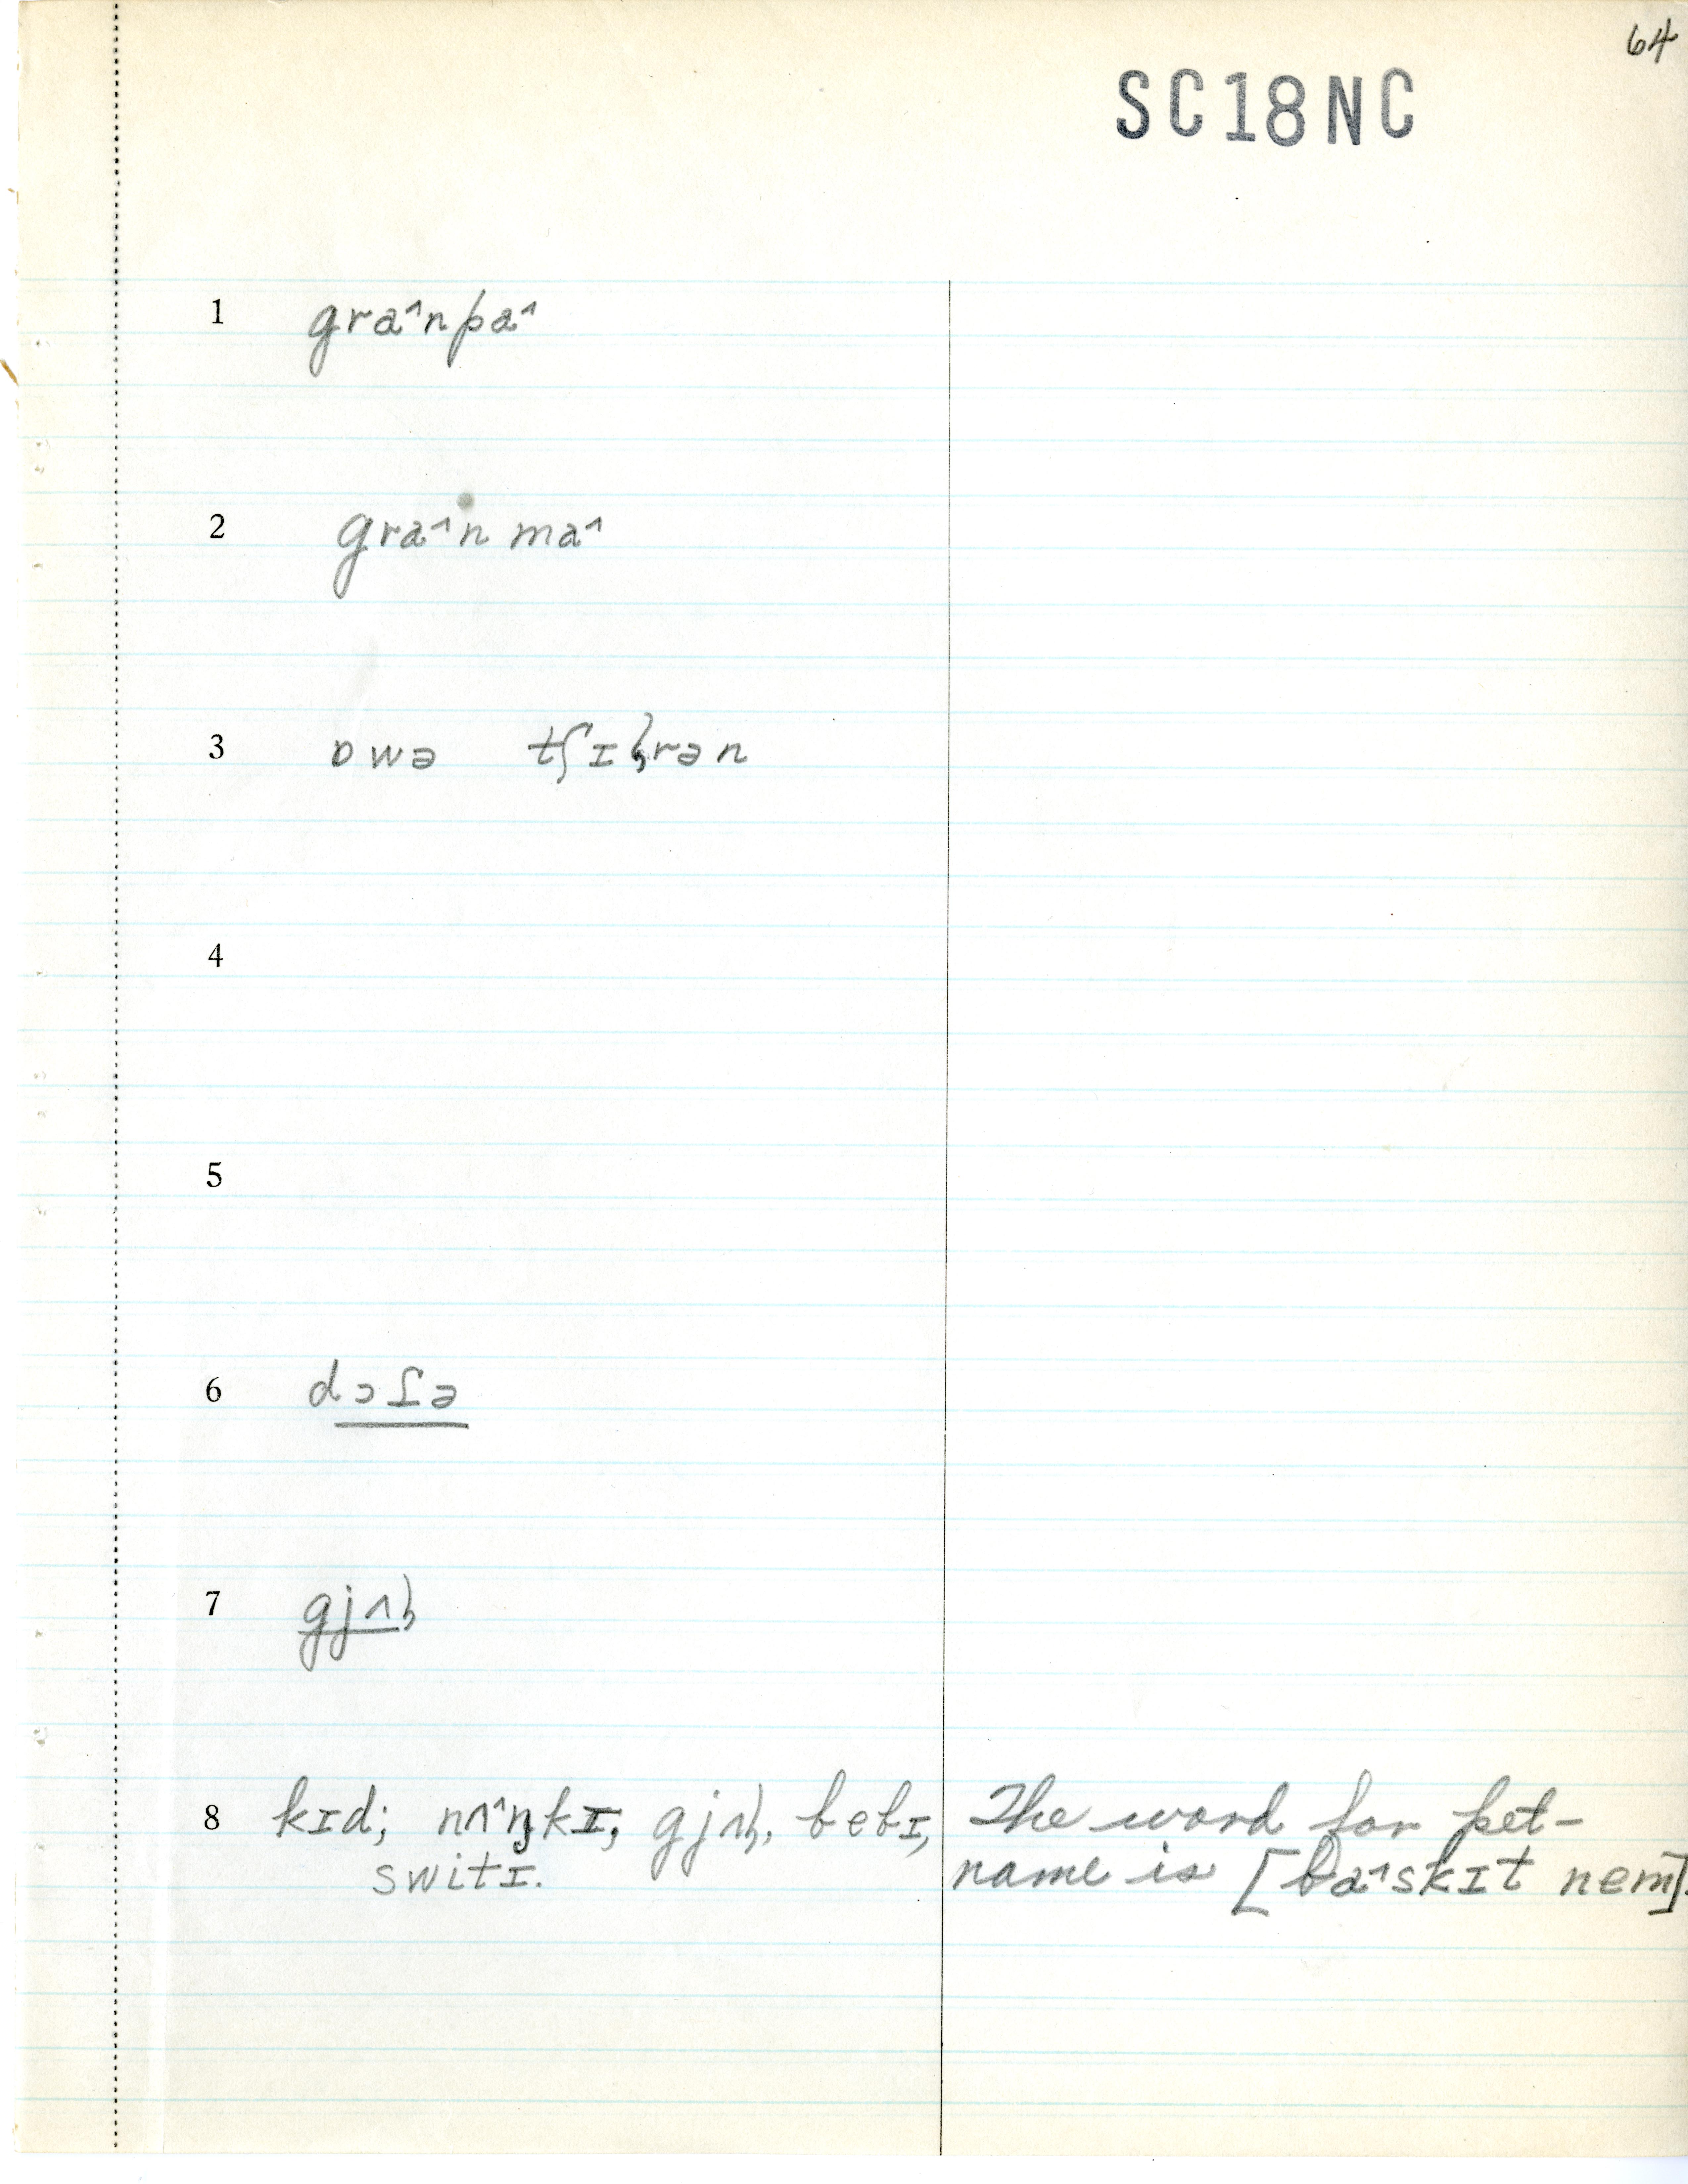 64
SC18NC
1 gra^npa^
2 gra^n ma^
3 ɒwə tʃɪɮrən
4
5
6 dɔɾ̱ə
7 gjʌɮ
8 kɪd; nʌ^ŋkɪ; gjʌɮ, bebɪ, The word for pet-
switɪ. name is [ba^skɪt nem].